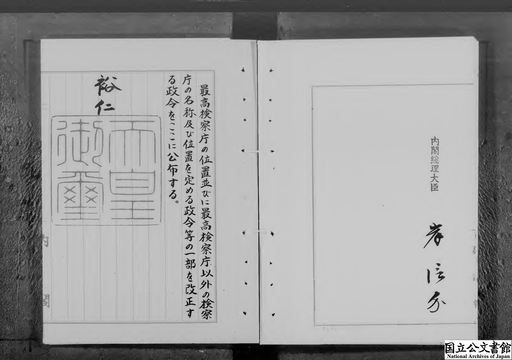 内閣総理大臣
岸信介
最高検察庁の位置並びに最高検察庁以外の検察
庁の名称及び位置を定める政令等の一部を改正す
る政令をここに公布する。
裕仁
天皇
御璽
内閣
国立公文書館
National Archives of Japan